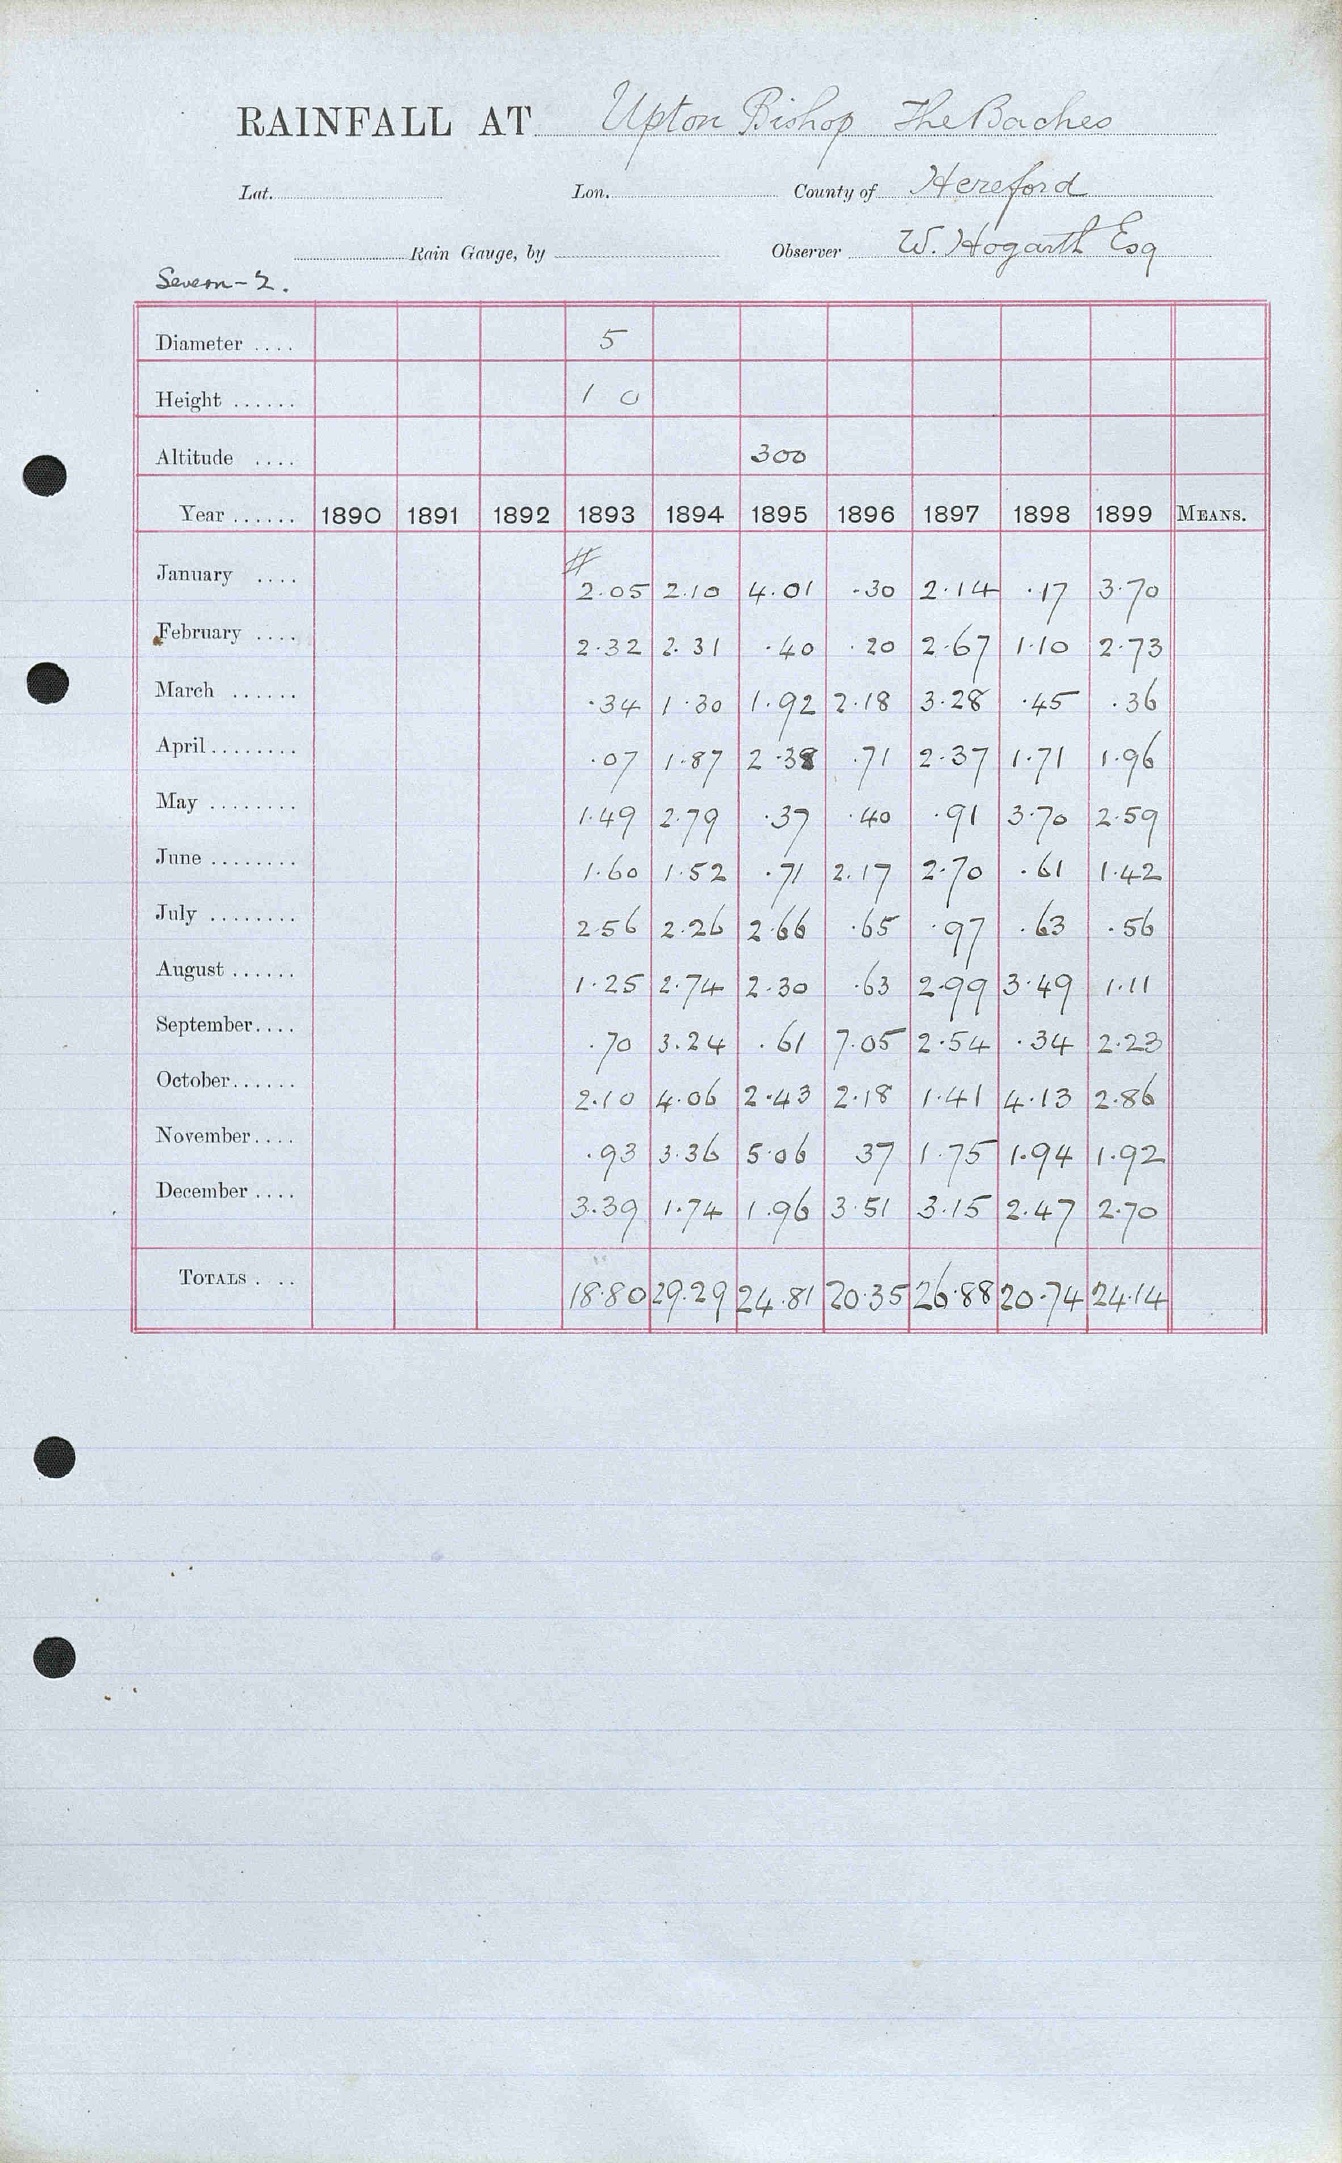 RAINFALL AT Upton Bishop The Baches
Lat. Lon. County of Hereford
Rain Gauge, by Observer W. Hogarth Esq
Severn-2.
Diameter .... 5
Height ...... 1 0
Altitude .... 300
Year ...... 1890 1891 1892 1893 1894 1895 1896 1897 1898 1899 MEANS.
#
January .... 2.05 2.10 4.01 .30 2.14 .17 3.70
February .... 2.32 2.31 .40 .20 2.67 1.10 2.73
March ...... .34 1.30 1.92 2.18 3.28 .45 .36
April ........ .07 1.87 2.38 .71 2.37 1.71 1.96
May ........ 1.49 2.79 .37 .40 .91 3.70 2.59
June ........ 1.60 1.52 .71 2.17 2.70 .61 1.42
July ........ 2.56 2.26 2.66 .65 .97 .63 .56
August ...... 1.25 2.74 2.30 .63 2.99 3.49 1.11
September.... .70 3.24 .61 7.05 2.54 .34 2.23
October...... 2.10 4.06 2.43 2.18 1.41 4.13 2.86
November.... .93 3.36 5.06 37 1.75 1.94 1.92
December .... 3.39 1.74 1.96 3.51 3.15 2.47 2.70
TOTALS . .. 18.80 29.29 24.81 20.35 26.88 20.74 24.14